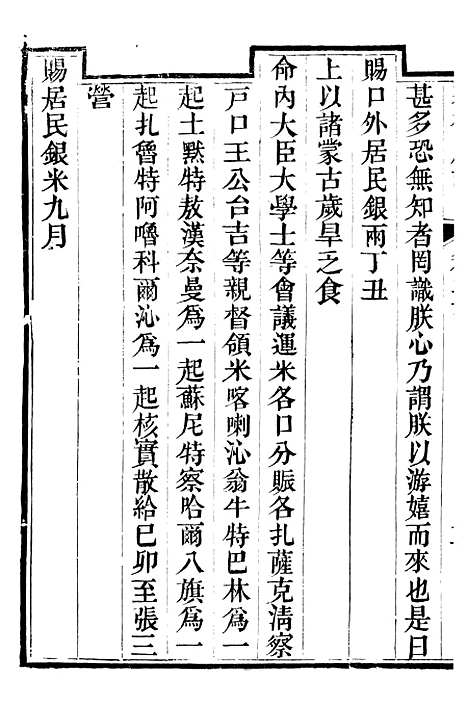 甚多恐無知者罔識朕心乃謂朕以游嬉而來也是日
賜口外居民銀兩丁丑
上以諸蒙古歲旱乏食
命內大臣大學士等會議運米各口分賑各扎薩克淸察
戸口王公台吉等親督領米喀喇沁翁牛特巴林爲一
起土黙特敖漢奈曼爲一起蘇尼特察哈爾八旗爲一
起扎魯特阿嚕科爾沁爲一起核實散給己卯至張三
營
賜居民銀米九月